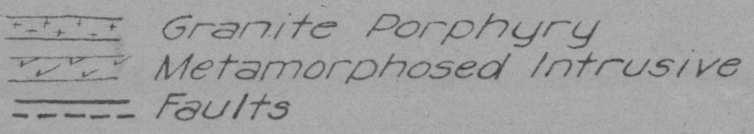 Granite Porphyry
Metamorphosed Intrusive
Faults